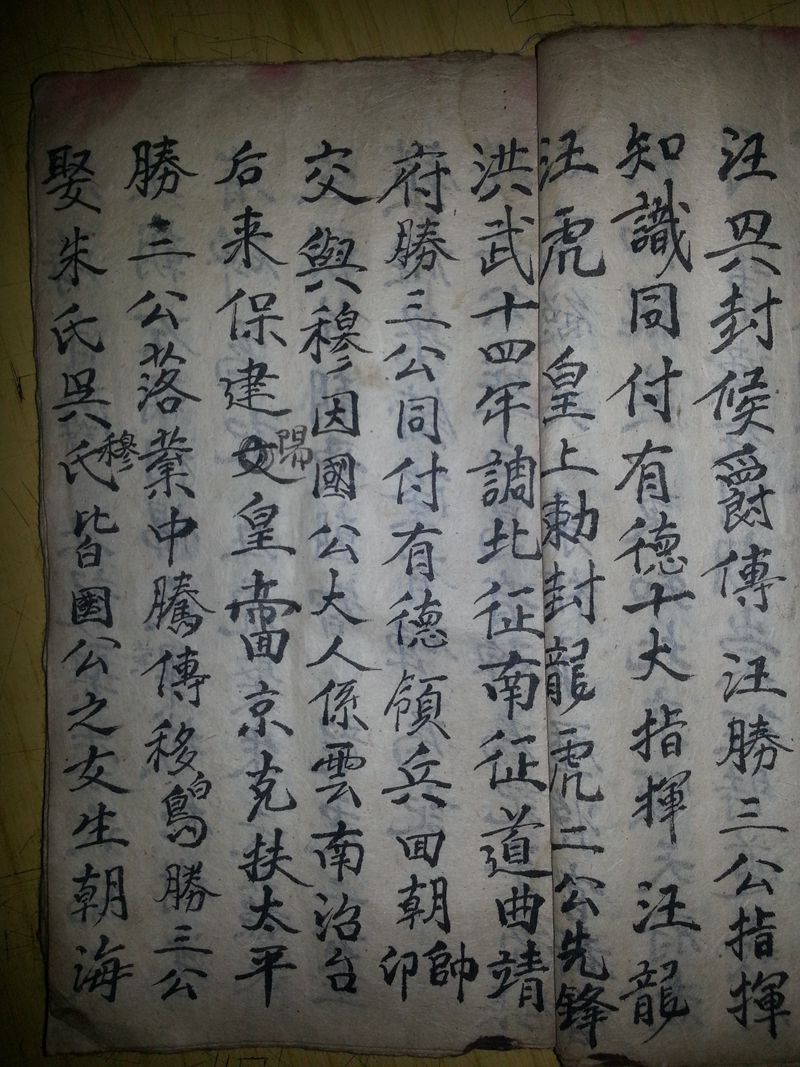 汪封候爵傳 汪勝三公指揮
知識同付有德十大指揮 汪龍
汪虎 皇上勅封龍虎二公先鋒
洪武十四年調北征南征道曲靖
府勝三公同付有德領兵回朝帥印
交與穆因國公大人係雲南治台
后来保建文陽皇帝回京克扶太平
勝三公落業中騰傳移勝三公
娶朱氏吳氏穆皆國公之女生朝海